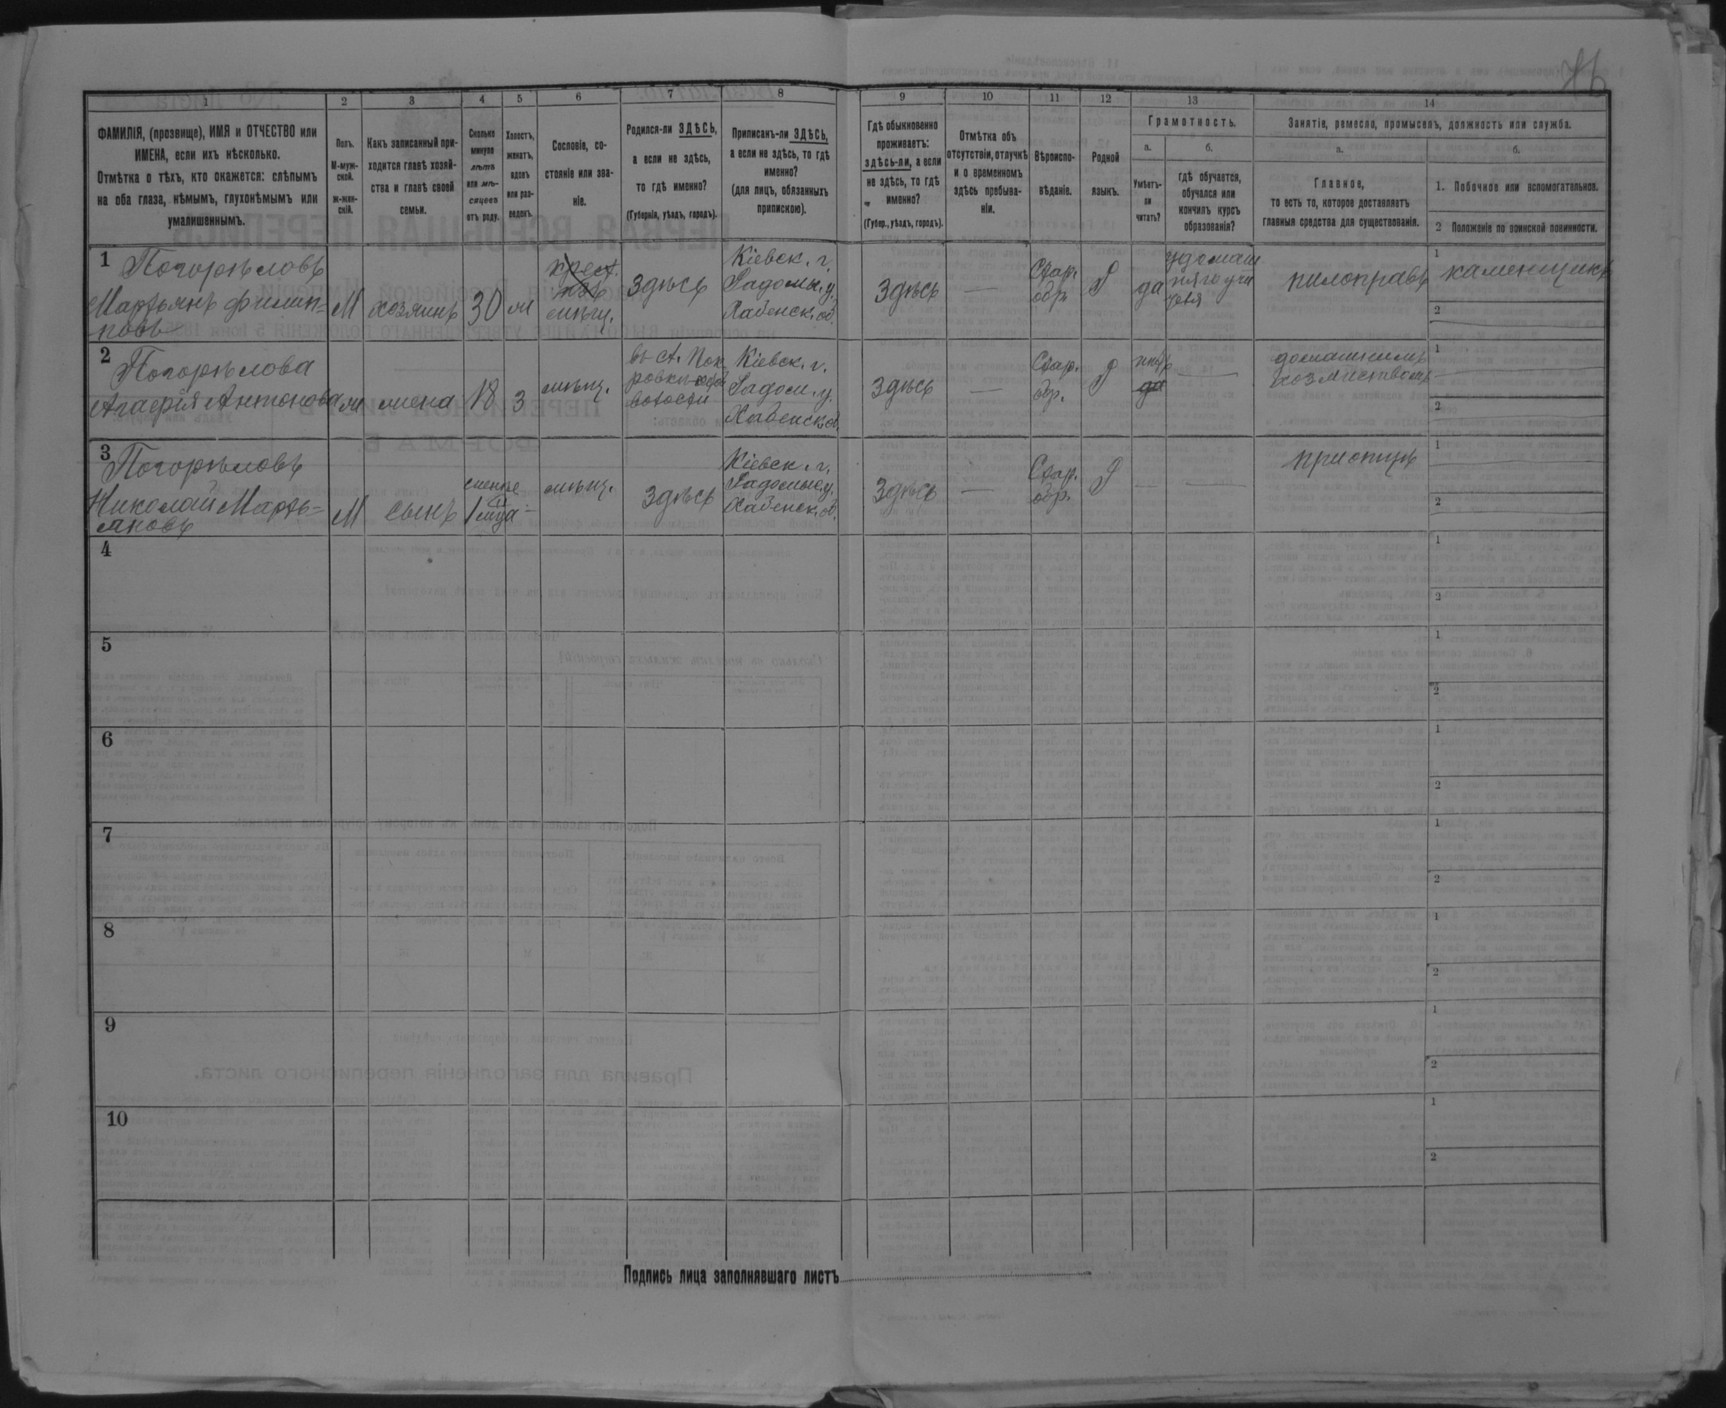 1
2
3
4
5
6
7
8
9
10
11
12
13
14
ФАМИЛІЯ, (прозвище), ИМЯ и ОТЧЕСТВО или
ИМЕНА, если ихъ нѣсколько.
Отмѣтка о тѣхъ, кто окажется: слѣпымъ
на оба глаза, нѣмымъ, глухонѣмымъ или
умалишеннымъ.
Полъ.
М-муж-
ской.
ж-жен-
скій.
Какъ записанный при-
ходится главѣ хозяй-
ства и главѣ своей
семьи.
Сколько
минуло
лѣтъ
или мѣ-
сяцевъ
отъ роду.
Холостъ,
женатъ,
вдовъ
или раз-
веденъ.
Сословіе, со-
стояніе или зва-
ніе.
Родился-ли ЗДѢСЬ,
а если не здѣсь,
то гдѣ именно?
(Губернія, уѣздъ, городъ).
Приписанъ-ли ЗДѢСЬ,
а если не здѣсь, то гдѣ
именно?
(для лицъ, обязанныхъ
припискою).
Гдѣ обыкновенно
проживаетъ:
здѣсь-ли, а если
не здѣсь, то гдѣ
именно?
(Губер., уѣздъ, городъ).
Отмѣтка объ
отсутствіи, отлучкѣ
и о временномъ
здѣсь пребыва-
ніи.
Вѣроиспо-
вѣданіе.
Родной
языкъ.
Грамотность.
а.
Умѣетъ-
ли
читать?
б.
гдѣ обучается,
обучался или
кончилъ курсъ
образованія?
Занятіе, ремесло, промыселъ, должность или служба.
а.
Главное,
то есть то, которое доставляетъ
главныя средства для существованія.
б.
1. Побочное или вспомогательное.
2 Положеніе по воинской повинности.
1
Погорѣловъ
Мартьянъ Филип=
повъ
М
хозяинъ
30
ж
крест.
мѣщ.
здѣсь
Кіевск. г.
Радомы. у.
Хабенск. в.
здѣсь
—
Стар.
обр.
Р
да
удомаш
няго учи
теля
пилоправъ
1
каменщикъ
2
2
Погорѣлова
Агафія Антонова
ж
жена
18
З
мѣщ.
Кіевск. г.
Радом. у.
Хабенск. в.
здѣсь
—
Стар.
обр.
Р
нѣтъ
да
—
домашнимъ
хозяйствомъ
1
2
3
Погорѣловъ
Николай Марть=
яновъ
М
сынъ
менѣе
1 мѣца
-
мѣщ.
здѣсь
Кіевск. г.
Радомы. у.
Хабенск. в.
здѣсь
—
Стар.
обр.
Р
—
—
при отцѣ
1
2
4
1
2
5
1
2
6
1
2
7
1
2
8
1
2
9
1
2
10
1
2
Подпись лица заполнявшаго листъ